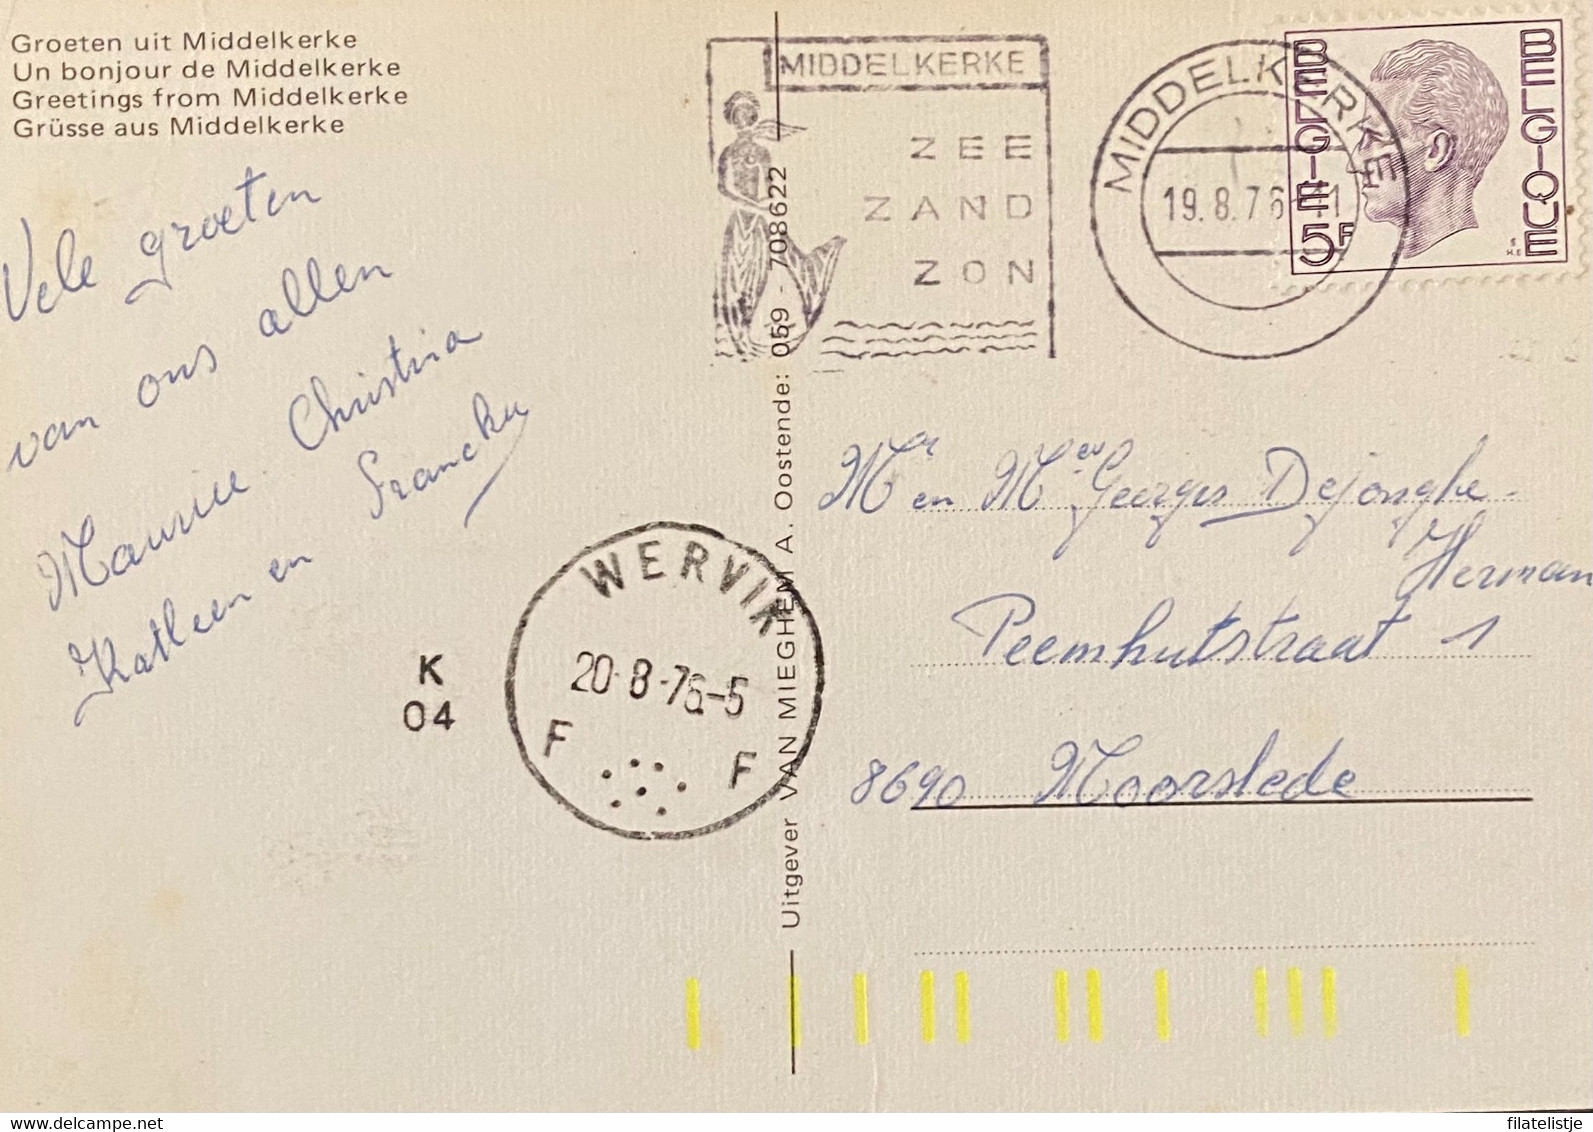 Groeten uit Middelkerke
Un bonjour de Middelkerke
Greetings from Middelkerke
Grüsse aus Middelkerke
Vele groeten
van ons allen
Maurice Christina
Katleen en Francky
MIDDELKERKE
ZEE
ZAND
ZON
MIDDELKERKE
19.8.76
BELGIE
5F
BELGIQUE
Uitgever VAN MIEGHEM A. Oostende: 059 - 708622
WERVIK
20-8-76-5
F F
K
04
Mr en Mev Georges Dejonghe -
Herman
Peemhutstraat 1
8690 Moorslede
delcampe.net
filatelistje